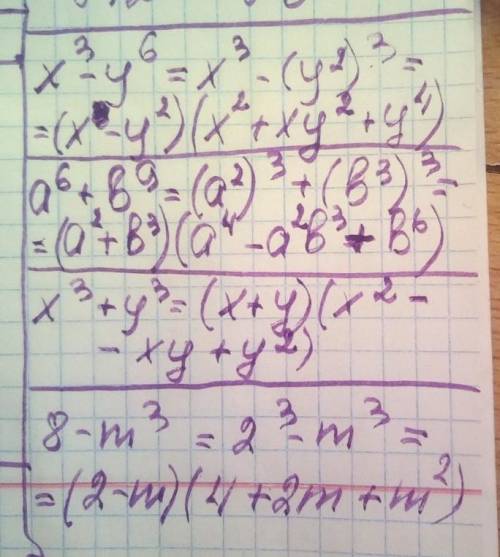 x³-y⁶ = x³ - (y²)³ =
=(x -y²)(x²+xy²+y⁴)
a⁶+b⁹=(a²)³+(b³)³=
=(a²+b³)(a⁴-a²b³+b⁶)
x³+y³=(x+y)(x²-
- xy+y²)
8-m³ = 2³-m³ =
=(2-m)(4+2m+m²)